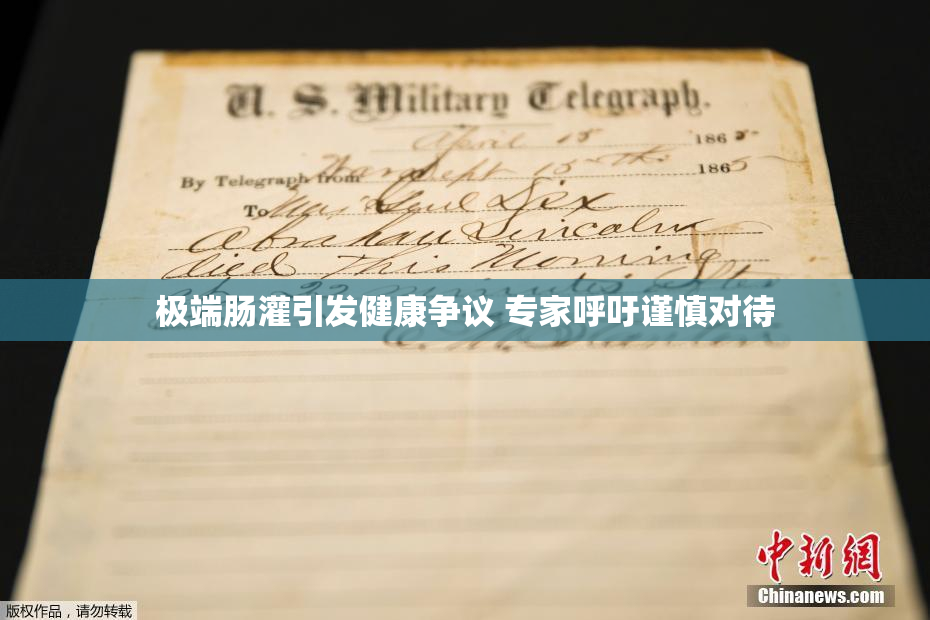 U. S. Military Telegraph.
April 15 1865
By Telegraph from War Dept 15th 1865
To Maj Genl Dix
Abraham Lincoln
died This Morning
at 22 minutes after
极端肠灌引发健康争议 专家呼吁谨慎对待
中新网
Chinanews.com
版权作品，请勿转载